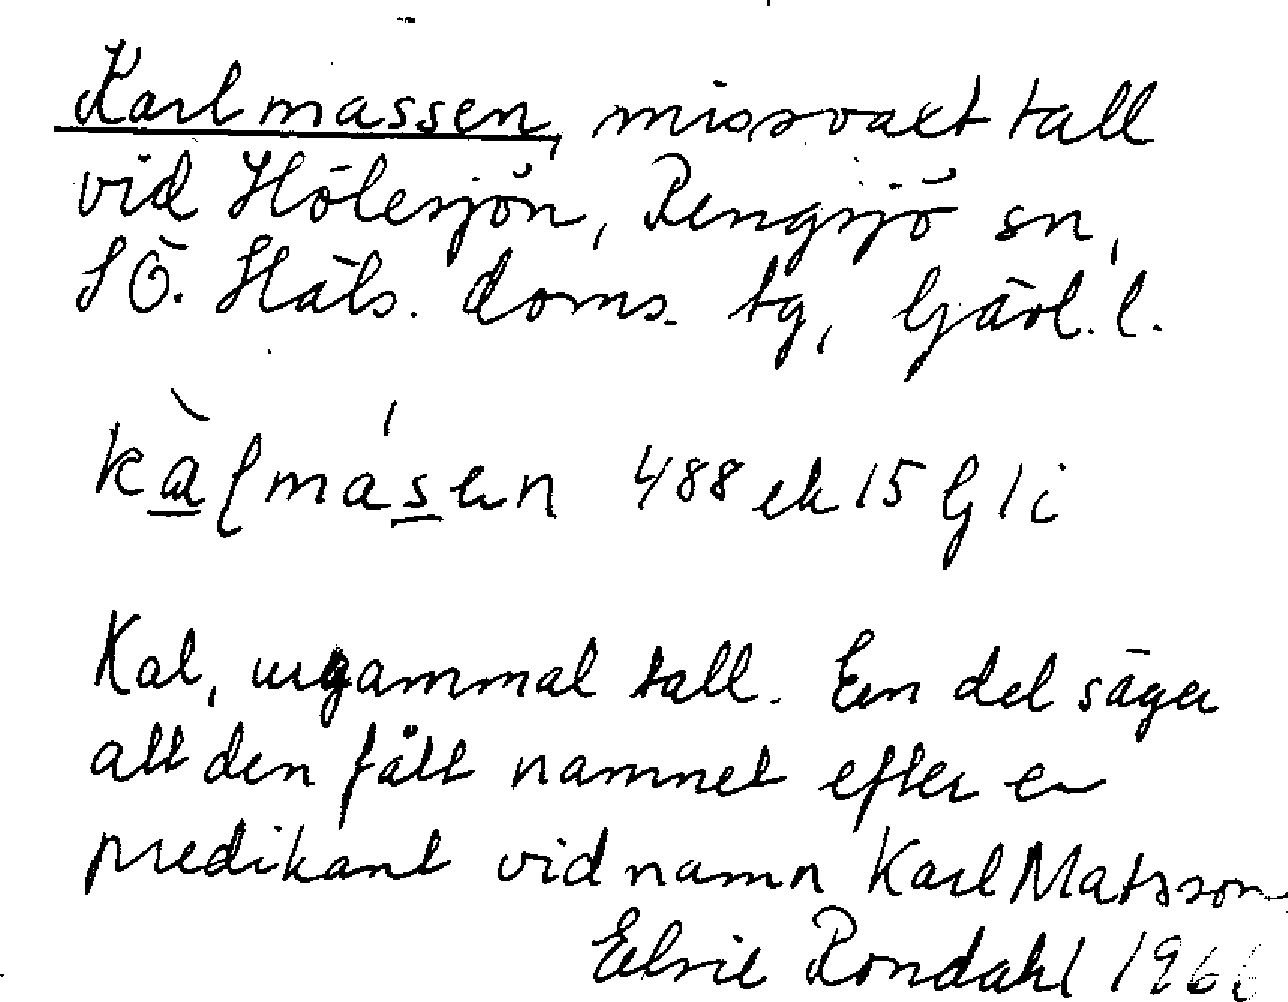 Karlmassen, missvaxt tall
vid Hölesjön, Rengsjö sn,
SÖ. Häls. doms. tg, Gävl. l.
488 ek 15 G 1 i
Kal, urgammal tall. En del säger
att den fått namnet efter en
predikant vid namn Karl Matsson.
Elvie Rondahl 1966